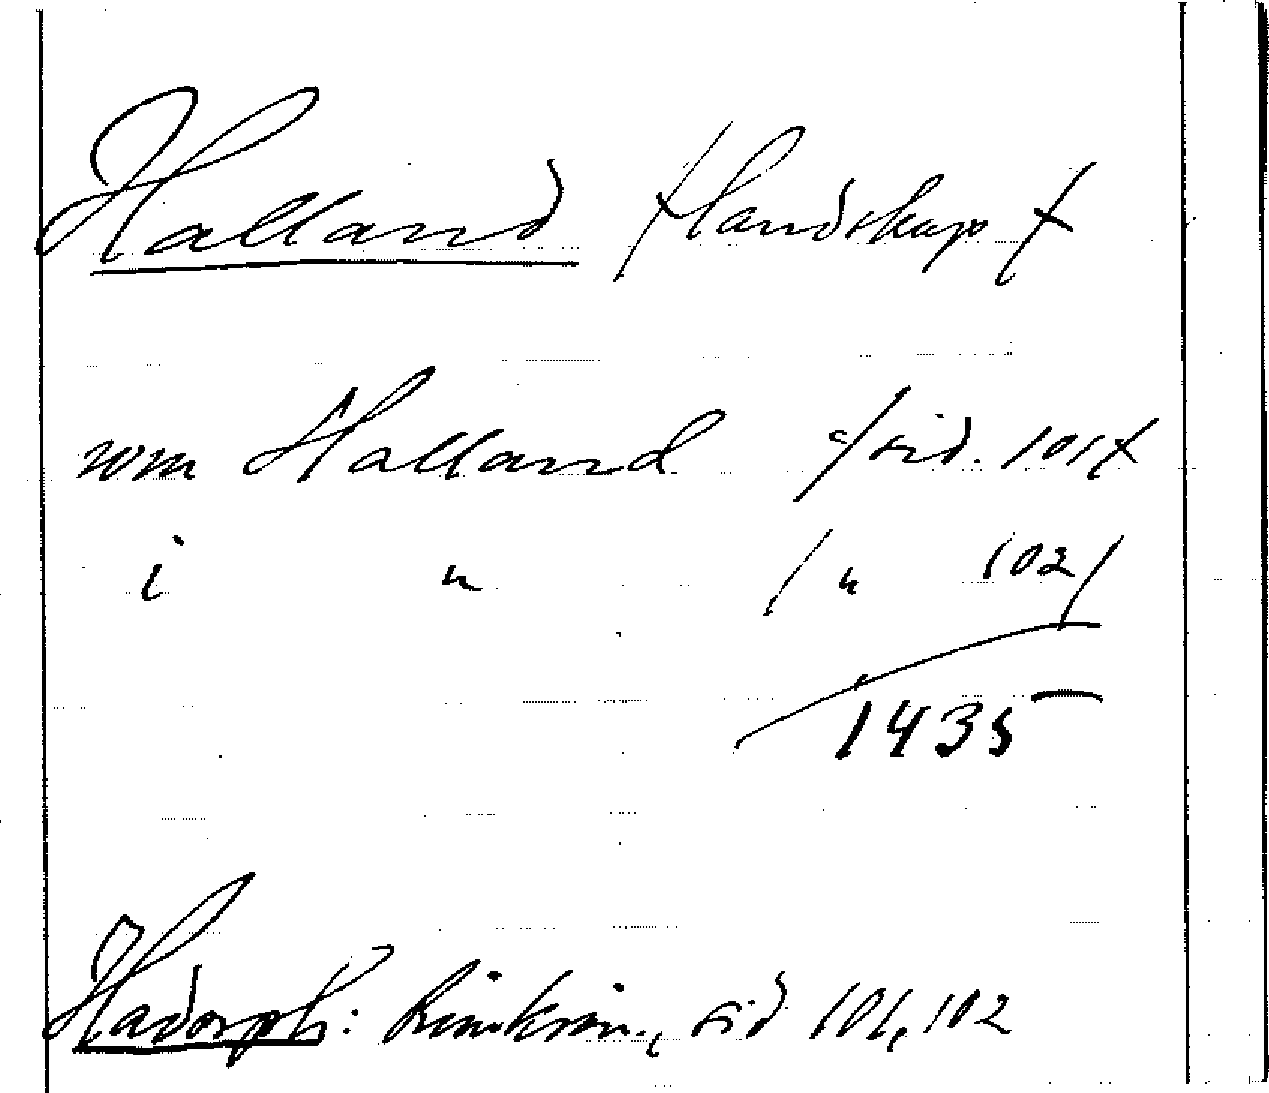 Halland /:landskap:/
wm Halland /sid. 101/
i " /" 102/
1435
Hadorph: Rimkrön., sid 101, 102